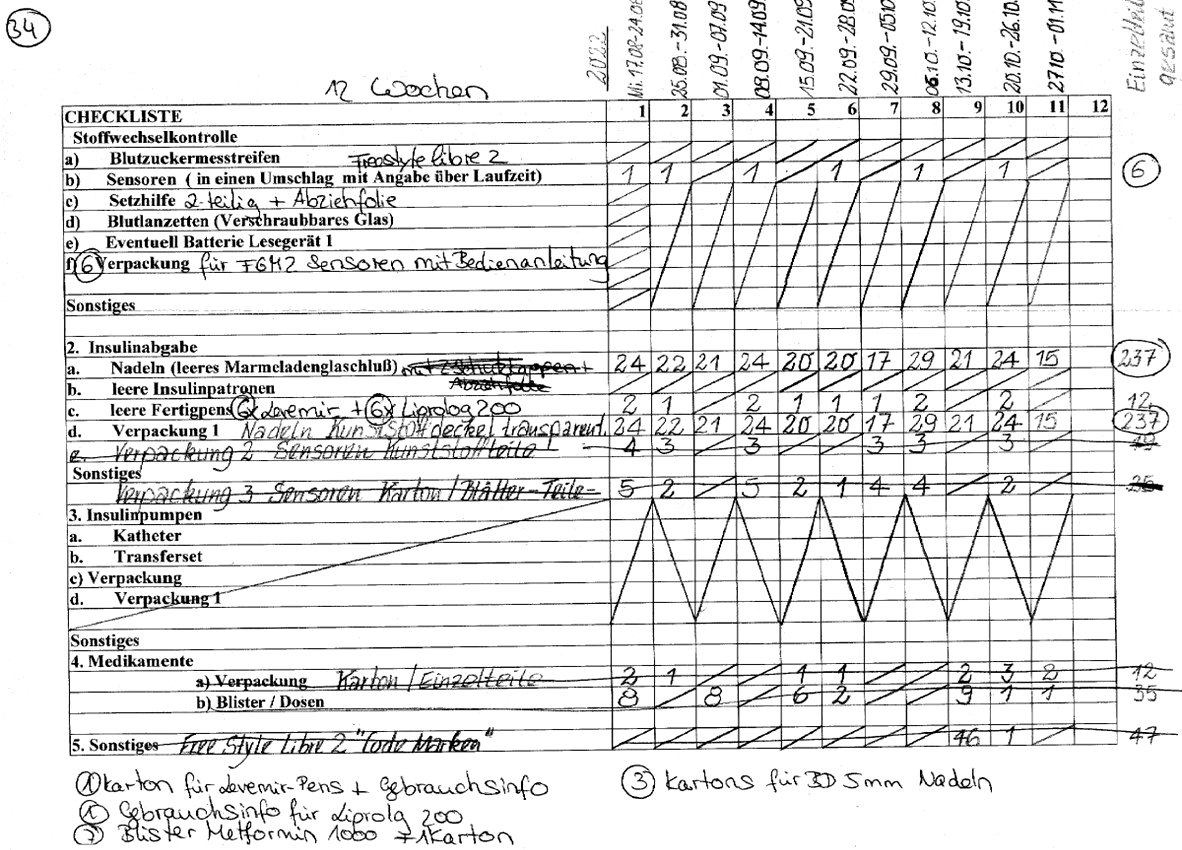 34
2022 Mi. 17.08-24.08 25.08.-31.08 01.09.-07.09 08.09.-14.09. 15.09.-21.09 22.09.-28.09 29.09.-05.10 06.10.-12.10. 13.10.-19.10. 20.10.-26.10. 27.10.-01.11 Einzelteile gesamt
12 Wochen
CHECKLISTE 1 2 3 4 5 6 7 8 9 10 11 12
Stoffwechselkontrolle
a) Blutzuckermesstreifen Freestyle libre 2
b) Sensoren ( in einen Umschlag mit Angabe über Laufzeit) 1 1 1 1 1 1 6
c) Setzhilfe 2-teilig + Abziehfolie
d) Blutlanzetten (Verschraubbares Glas)
e) Eventuell Batterie Lesegerät 1
f) 6 Verpackung für FGM2 Sensoren mit Bedienanleitung
Sonstiges
2. Insulinabgabe
a. Nadeln (leeres Marmeladenglaschluß) mit 2 Schutzkappen + 24 22 21 24 20 20 17 29 21 24 15 237
b. leere Insulinpatronen Abziehfolie
c. leere Fertigpens 6x Levemir + 6x Liprolog 200 2 1 2 1 1 1 2 2 12
d. Verpackung 1 Nadeln Kunststoffdeckel transparent. 24 22 21 24 20 20 17 29 21 24 15 237
e. Verpackung 2 Sensoren Kunststoffteile 4 3 3 3 3 3 19
Sonstiges
Verpackung 3 Sensoren Karton / Blätter-Teile- 5 2 5 2 1 4 4 2
3. Insulinpumpen
a. Katheter
b. Transferset
c) Verpackung
d. Verpackung 1
Sonstiges
4. Medikamente
a) Verpackung Karton / Einzelteile 2 1 1 1 2 3 2 12
b) Blister / Dosen 8 8 6 2 9 1 1 35
5. Sonstiges Free Style Libre 2 "Code Marken" 46 1 47
1 Karton für Levemir-Pens + Gebrauchsinfo
3 Kartons für BD 5mm Nadeln
1 Gebrauchsinfo für Liprolg 200
7 Blister Metformin 1000 + 1 Karton